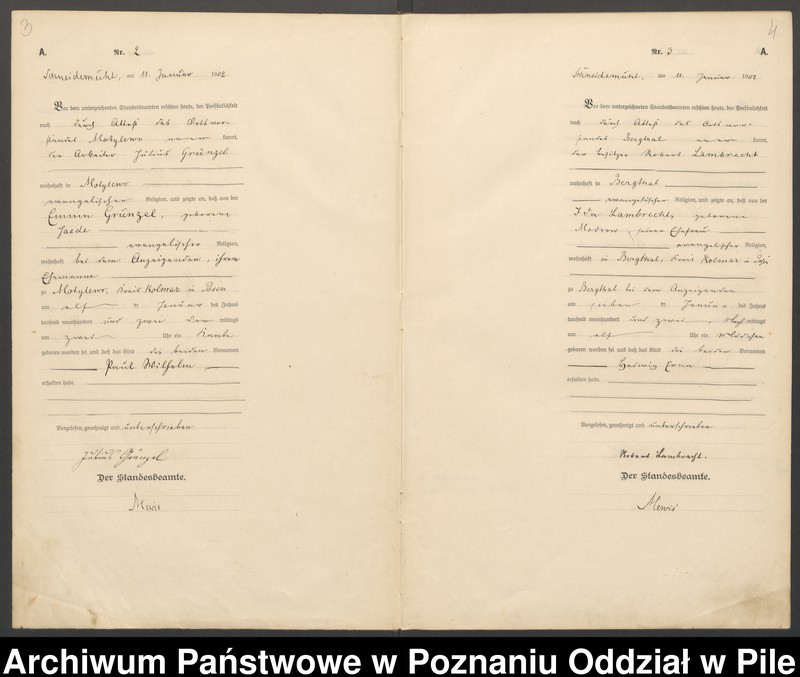 3
A.
Nr. 2
Schneidemühl, am 11. Januar 1902
Vor dem unterzeichneten Standesbeamten erschien heute, der Persönlichkeit
nach durch Attest des Ortsvor-
standes Motylewo kannt,
der Arbeiter Julius Grünzel
wohnhaft in Motylewo
evangelischer Religion, und zeigte an, daß von der
Emma Grünzel, geborene
Jaede
evangelischer Religion,
wohnhaft bei dem Anzeigenden, ihrem
Ehemanne
zu Motylewo, Kreis Kolmar in Posen
am elf ten Januar des Jahres
tausend neunhundert und zwei Vor mittags
um zwei Uhr ein Knabe
geboren worden sei und daß das Kind die beiden Vornamen
Paul Wilhelm
erhalten habe.
Vorgelesen, genehmigt und unterschrieben
Julius Grünzel
Der Standesbeamte.
Mewis
4
Nr. 3
A.
Schneidemühl, am 11. Januar 1902
Vor dem unterzeichneten Standesbeamten erschien heute, der Persönlichkeit
nach durch Attest des Ortsvor-
standes Bergthal kannt,
der Besitzer Robert Lambrecht
wohnhaft in Bergthal
evangelischer Religion, und zeigte an, daß von der
Ida Lambrecht, geborene
Modrow, seiner Ehefrau
evangelischer Religion,
wohnhaft in Bergthal, Kreis Kolmar in Posen
zu Bergthal bei dem Anzeigenden
am sieben ten Januar des Jahres
tausend neunhundert und zwei, Nach mittags
um elf Uhr ein Mädchen
geboren worden sei und daß das Kind die beiden Vornamen
Hedwig Erna
erhalten habe.
Vorgelesen, genehmigt und unterschrieben
Robert Lambrecht.
Der Standesbeamte.
Mewis
Archiwum Państwowe w Poznaniu Oddział w Pile